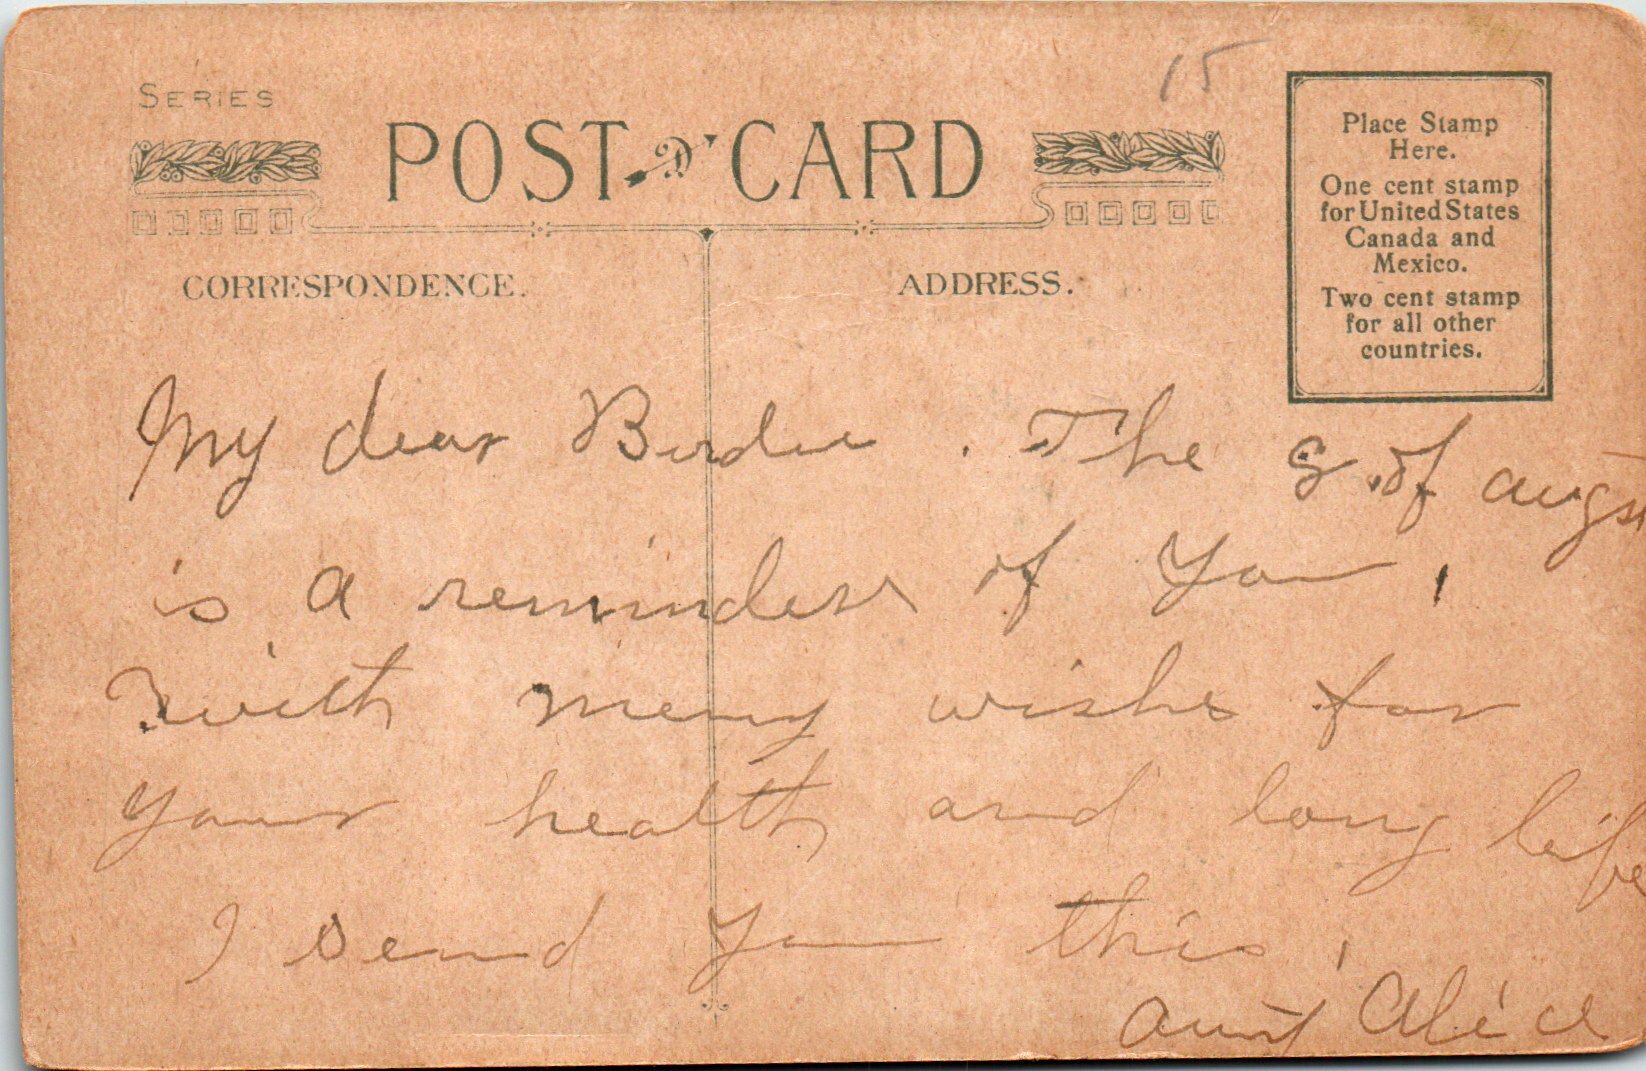 15
SERIES
POST CARD
CORRESPONDENCE.
ADDRESS.
Place Stamp
Here.
One cent stamp
for United States
Canada and
Mexico.
Two cent stamp
for all other
countries.
My dear Birdie. The 8 of augs
is a reminder of you,
with meny wishes for
your health and long life
I send you this,
aunt Alice